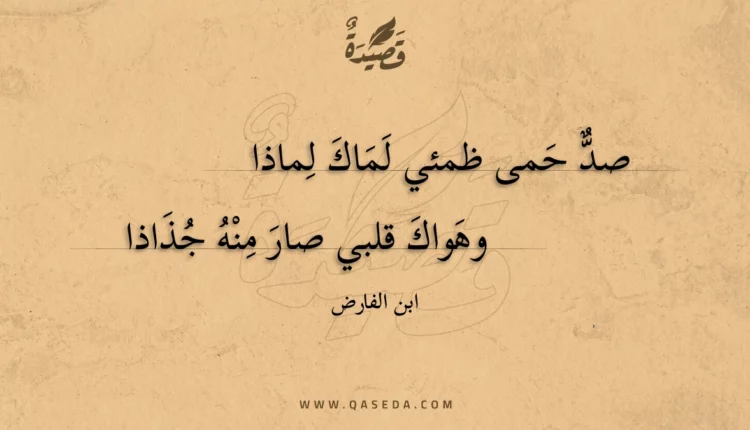 قَصِيْدَةٌ
صدٌّ حَمى ظمئي لَمَاكَ لِماذا
وهَواكَ قلبي صارَ مِنْهُ جُذَاذا
ابن الفارض
WWW.QASEDA.COM